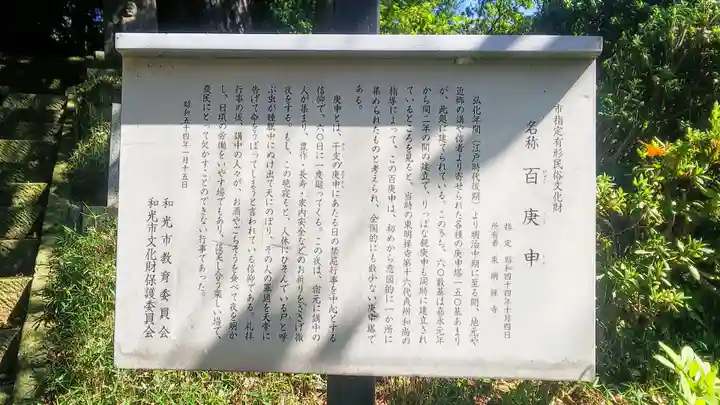 市指定有形民俗文化財
名称 百庚申
指定 昭和四十四年十月四日
所有者 東明禅寺
弘化年間（江戸時代後期）より明治中期に至る間、地元や
近郷の講や信者より寄せられた各種の庚申塔一五〇基あまり
が、此処に建てられている。このうち、六〇数基は嘉永元年
から同二年の間の建立で、りっぱな親庚申も同時に建立され
ているところを見ると、当時の東明禅寺第十六世
和尚の
指導によって、この百庚申は、初めから意図的に一か所に
集められたものと考えられ、全国的にも数少ない庚申塔で
ある。
庚申とは、干支の庚申にあたる日の禁忌行事を中心とする
信仰で、六〇日に一度巡ってくる。この夜は、宿元に講中の
人が集まり、豊作・長寿・家内安全などのお祈りをささげ徹
夜をする。もし、この晩寝ると、人体にひそんでいる尸と呼
ぶ虫が睡眠中にぬけ出て天にのぼり、その人の罪過を天帝に
告げて命をうばってしまうと言われている信仰である。礼拝
行事の後、講中の人々が、お酒やごちそうを食べて夜を明か
し、日頃の労働をいやす場でもあり、談笑し合う楽しい場で、
農民にとって欠かすことのできない行事であった。
昭和五十四年一月十五日
和光市教育委員会
和光市文化財保護委員会